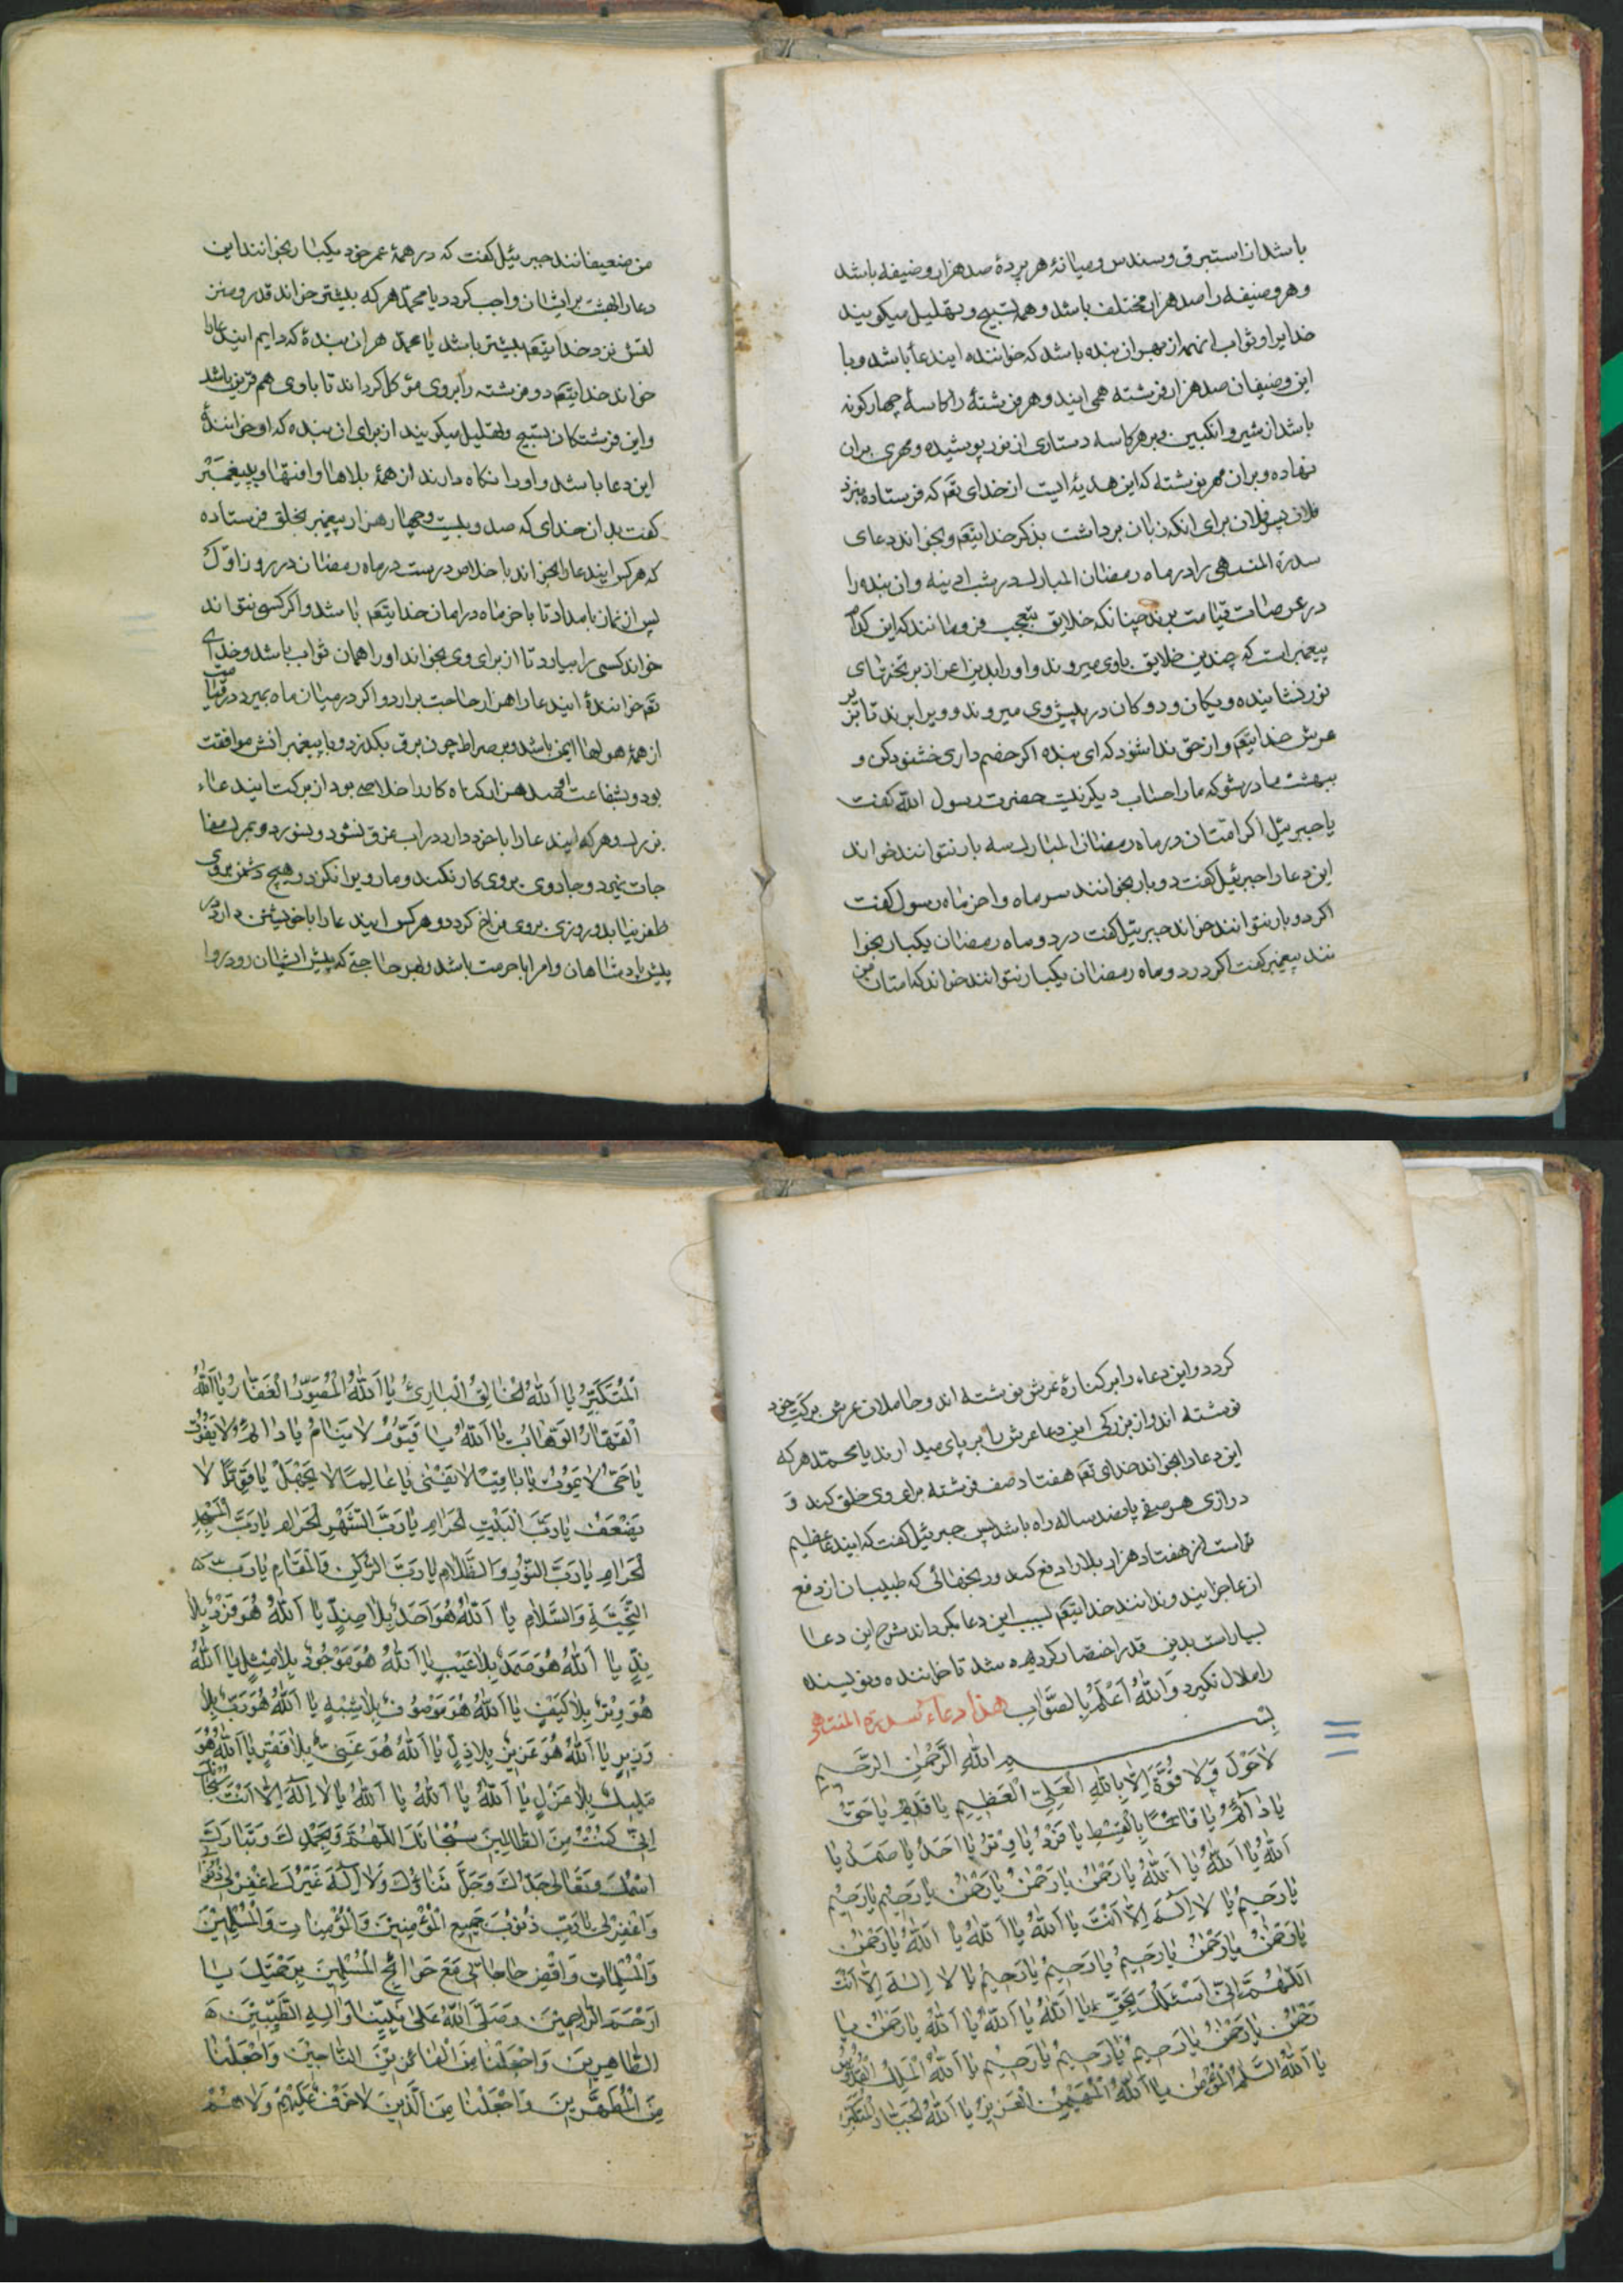 باشد از استبرق و سندس و میانهٔ هر پردهٔ صد هزار وضیفه باشد
و هر وضیفه را صد هزار مختلف باشد و همه تسبیح و تهلیل میکویند
خدایرا و ثواب انهمه از بهر ان بنده باشد که خواننده ایندعا باشد و با
این وضیفان صد هزار فرشته همی ایند و هر فرشتهٔ را کاسهٔ چهار کونه
باشد از شیر و انکبین و بر هر کاسه دستاری از نور پوشیده و مهری بران
نهاده و بران مهر نوشته که این هدیهٔ ایست از خدای تعم که فرستاده بنزد
فلان پسر فلان برای انکه زبان برداشت بذکر خدایتعم و بخواند دعای
سدرة المنتهی را در ماه رمضان المبارک در شب ادینه و ان بنده را
در عرصات قیامت برند چنانکه خلایق بتعجب فرو مانند که این کدام
پیغمبر است که چندین خلایق باوی میروند و اورا بدین اعزاز بر تختهای
نور نشانیده و یکان و دوکان در پیش وی میروند و ویرا برند تا بزیر
عرش خدایتعم و از حق ندا شود که ای بنده اکر خصم داری خشنود کن و
ببهشت ما در شو که مارا حساب دیکر نیست حضرت رسول الله کفت
یا جبرئیل اکر امتان در ماه رمضان المبارک سه بار نتوانند خواند
این دعارا جبرئیل کفت دو بار بخوانند سر ماه و اخر ماه رسول کفت
اکر دو بار نتوانند خواند جبرئیل کفت در دو ماه رمضان یکبار بخوا
نند پیغمبر کفت اکر در دو ماه رمضان یکبار نتوانند خواند که امتان
من ضعیفانند جبرئیل کفت که در همهٔ عمر خود یکبار بخوانند این
دعارا بهشت برایشان واجب کردد یا محمد هر که بیشتر خواند قدر و منز
لتش نزد خدایتعم بیشتر باشد یا محمد هر ان بندهٔ که دایم ایندعارا
خواند خدایتعم دو فرشته را بروی موکل کرداند تا باوی هم قرین باشد
و این فرشتکان تسبیح و تهلیل میکویند از برای ان بنده که او خوانندهٔ
این دعا باشد و اورا نکاه دارند از همهٔ بلاها و افتها و پیغمبر
کفت بدان خدای که صد و بیست و چهار هزار پیغمبر بخلق فرستاده
که هر کس ایندعارا بخواند با خلاص درست در ماه رمضان در روز اوّل
پس از نماز بامداد تا باخر ماه در امان خدایتعم باشد و اکر کسی نتواند
خواند کسی را بیاورد تا از برای وی بخواند اورا همان ثواب باشد و خدای
تعم خوانندهٔ ایندعارا هزار حاجت برارد و اکر در میان ماه بمیرد در قیامت
از همهٔ هولها ایمن باشد و بر صراط چون برق بکذرد و با پیغمبرانش موافقت
بود و بشفاعت او صد هزار کناه کار را خلاصی بود از برکت ایندعاء
بزرک و هر که ایندعارا با خود دارد در اب غرق نشود و نسوزد و بمرک مفا
جات نمیرد و جادوی بروی کار نکند و مار ویرا نکزد و هیچ دشمن بروی
ظفر نیابد و روزی بروی فراخ کردد و هر کس ایندعارا با خویشتن دارد در
پیش پادشاهان و امرا با حرمت باشد و بهر حاجتی که پیش ایشان رود روا
کردد و این دعاء را بر کنارهٔ عرش نوشته اند و حاملان عرش برکت خود
نوشته اند و از بزرکی این دعا عرش را بر پای میدارند یا محمد هر که
این دعارا بخواند خدای تعم هفتاد صف فرشته برای وی خلق کند و
درازی هر صفی پانصد ساله راه باشد پس جبرئیل کفت که ایندعا عظیم
تراست از هفتاد هزار بلارا دفع کند و رنجهائی که طبیبان از دفع
ان عاجز ایند و ندانند خدایتعم بسبب این دعا بکرداند شرح این دعا
بسیار است بدین قدر اختصار کرده شد تا خواننده و نویسنده
را ملال نکیرد وَاللهُ اَعْلَمُ بِالصَّوَابِ هذا دعاء سدرة المنتهی
بِسْمِ اللهِ الرَّحْمٰنِ الرَّحِیمِ
لاحَوْلَ وَلا قُوَّةَ اِلّا بِاللهِ الْعَلِیِّ الْعَظِیمِ یا قَدِیمُ یا حَیُّ
یا دَائِمُ یا قَائِمًا بِالْقِسْطِ یا فَرْدُ یا وِتْرُ یا اَحَدُ یا صَمَدُ یا
اَللهُ یا اَللهُ یا اَللهُ یا رَحْمٰنُ یا رَحْمٰنُ یا رَحْمٰنُ یا رَحِیمُ یا رَحِیمُ
یا رَحِیمُ یا لا اِلٰهَ اِلّا اَنْتَ یا اَللهُ یا اَللهُ یا اَللهُ یا رَحْمٰنُ
یا رَحْمٰنُ یا رَحْمٰنُ یا رَحِیمُ یا رَحِیمُ یا رَحِیمُ یا لا اِلٰهَ اِلّا اَنْتَ
اَللّٰهُمَّ اِنّی اَسْئَلُكَ بِحَقِّ یا اَللهُ یا اَللهُ یا اَللهُ یا رَحْمٰنُ یا
رَحْمٰنُ یا رَحْمٰنُ یا رَحِیمُ یا رَحِیمُ یا رَحِیمُ یا اَللهُ الْمَلِكُ الْقُدُّوسُ
یا اَللهُ السَّلامُ الْمُؤْمِنُ یا اَللهُ الْمُهَیْمِنُ الْعَزِیزُ یا اَللهُ الْجَبَّارُ الْمُتَكَبِّرُ
اَلْمُتَكَبِّرُ یا اَللهُ الْخَالِقُ الْبَارِئُ یا اَللهُ الْمُصَوِّرُ الْغَفَّارُ یا اَللهُ
الْقَهَّارُ الْوَهَّابُ یا اَللهُ یا قَیُّومُ لا یَنَامُ یا دَائِمُ لا یَفُوتُ
یا حَیُّ لا یَمُوتُ یا بَاقِیًا لا یَفْنیٰ یا عَالِمًا لا یَجْهَلُ یا قَوِیًّا لا
یَضْعَفُ یا رَبَّ الْبَیْتِ الْحَرَامِ یا رَبَّ الشَّهْرِ الْحَرَامِ یا رَبَّ الْمَسْجِدِ
الْحَرَامِ یا رَبَّ النُّورِ وَالظَّلامِ یا رَبَّ الرُّكْنِ وَالْمَقَامِ یا رَبَّ
التَّحِیَّةِ وَالسَّلامِ یا اَللهُ هُوَ اَحَدٌ بِلا ضِدٍّ یا اَللهُ هُوَ فَرْدٌ بِلا
نِدٍّ یا اَللهُ هُوَ صَمَدٌ بِلا عَیْبٍ یا اَللهُ هُوَ مَوْجُودٌ بِلا مِثْلٍ یا اَللهُ
هُوَ وِتْرٌ بِلا كَیْفٍ یا اَللهُ هُوَ مَوْصُوفٌ بِلا شِبْهٍ یا اَللهُ هُوَ رَبٌّ بِلا
وَزِیرٍ یا اَللهُ هُوَ عَزِیزٌ بِلا ذِلٍّ یا اَللهُ هُوَ غَنِیٌّ بِلا فَقْرٍ یا اَللهُ هُوَ
مَلِیكٌ بِلا عَزْلٍ یا اَللهُ یا اَللهُ یا اَللهُ یا لا اِلٰهَ اِلّا اَنْتَ سُبْحَانَكَ
اِنّی كُنْتُ مِنَ الظَّالِمِینَ سُبْحَانَكَ اللّٰهُمَّ وَبِحَمْدِكَ وَتَبَارَكَ
اسْمُكَ وَتَعَالیٰ جَدُّكَ وَجَلَّ ثَنَاؤُكَ وَلا اِلٰهَ غَیْرُكَ اِغْفِرْ لی ذُنُوبی
وَاغْفِرْ لی یا رَبِّ ذُنُوبَ جَمِیعِ الْمُؤْمِنِینَ وَالْمُؤْمِنَاتِ وَالْمُسْلِمِینَ
وَالْمُسْلِمَاتِ وَاقْضِ حَاجَاتی مَعَ حَوَائِجِ الْمُسْلِمِینَ بِرَحْمَتِكَ یا
اَرْحَمَ الرَّاحِمِینَ وَصَلَّی اللهُ عَلیٰ نَبِیِّنَا وَاٰلِهِ الطَّیِّبِینَ
الطَّاهِرِینَ وَاجْعَلْنَا مِنَ الْفَائِزِینَ النَّاجِینَ وَاجْعَلْنَا
مِنَ الْمُطَهَّرِینَ وَاجْعَلْنَا مِنَ الَّذِینَ لا خَوْفٌ عَلَیْهِمْ وَلا هُمْ